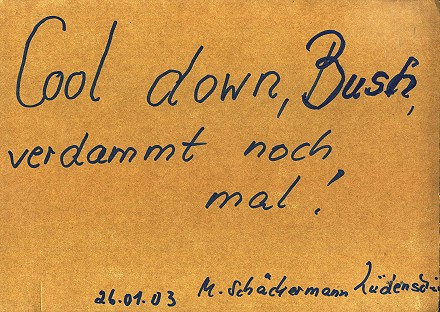 Cool down, Bush,
verdammt noch
mal!
26.01.03 M. Schächermann